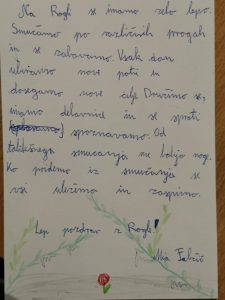 Na Rogli se imamo zelo lepo.
Smučamo po različnih progah
in se zabavamo. Vsak dan
ubiramo nove poti in
dosegamo nove cilje. Družimo se,
imamo delavnice in se sproti
spoznavamo. Od
tolikšnega smučanja me bolijo noge.
Ko pridemo iz smučanja se
vse uležimo in zaspimo.
Lep pozdrav z Rogle!